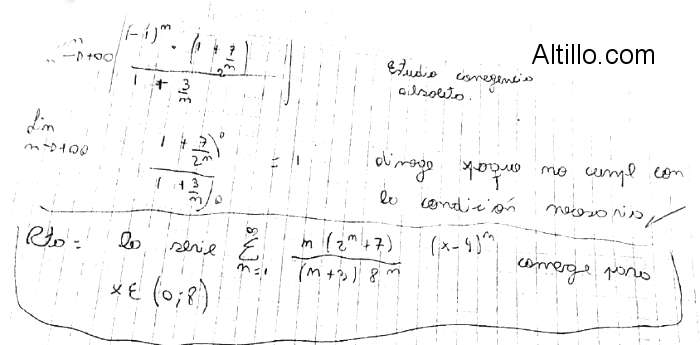 Altillo.com
n→+∞ | (-1)^n · (1 + 7/2^n) / (1 + 3/n) |
Estudio convergencia
absoluta.
lim n→+∞ (1 + 7/2^n) / (1 + 3/n) = 1 diverge porque no cumple con
la condición necesaria
Rta = la serie ∑ n=1 ∞ n (2^n + 7) / (n+3) 8^n (x-4)^n converge para
x ∈ (0;8)